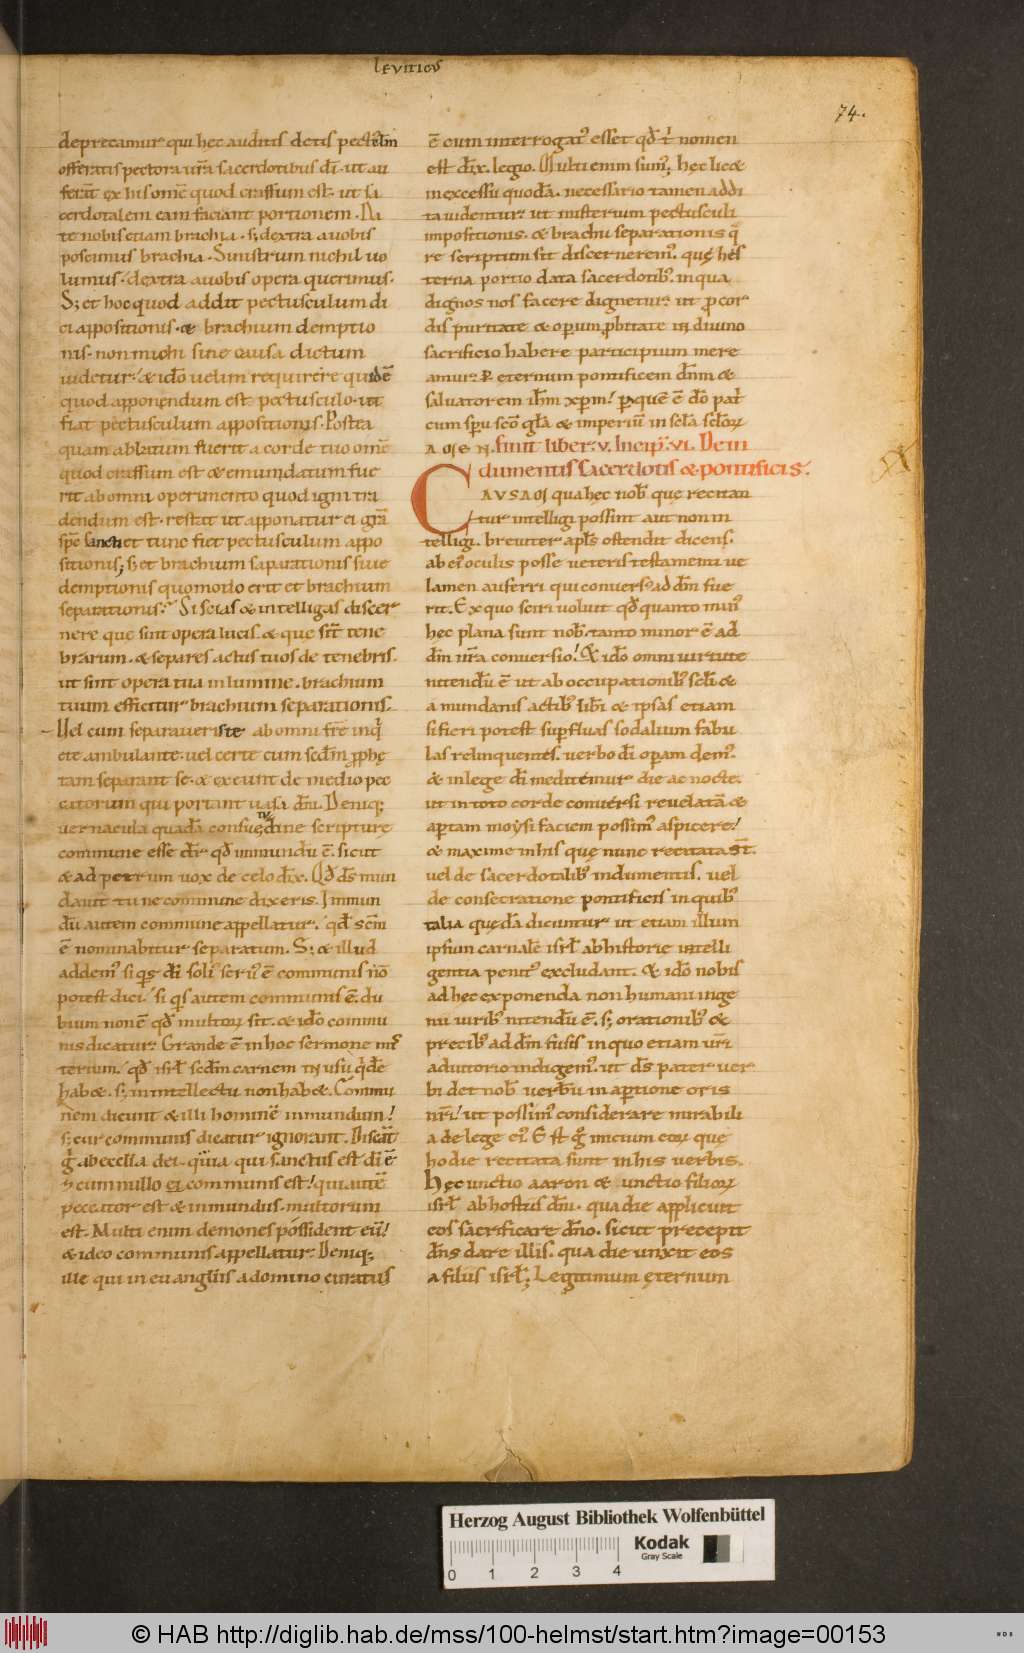 leviticus
74.
deprecamur qui hec auditis detis pectꝰculum
offeratis pectora ur̄a sacerdotibus dī. ut au
ferat ex his om̄e quod crassum est. ut sa
cerdotalem eam faciant portionem. Da
te nobis etiam brachia. s; dextra a uobis
poscimus brachia. Sinistrum nichil uo
lumus. dextra a uobis opera querimus.
S; et hoc quod addit pectusculum di
ci appositionis. & brachium demptio
nis. non michi sine causa dictum
uidetur. & ido uelim requirere quidē
quod apponendum est pectusculo. ut
fiat pectusculum appositionis. Postea
quam ablatum fuerit a corde tuo om̄e
quod crassum est & emundatum fue
rit ab omni operimento quod igni tra
dendum est. restat ut apponatur ei gr̄a
sp̄c sancti et tunc fiet pectusculum appo
sitionis; s; et brachium saparationis siue
demptionis quomodo erit et brachium
separationis. Si scias & intelligas discer
nere que sint opera lucis. & que sīt tene
brarum. & separes actus tuos de tenebris.
ut sint opera tua in lumine. brachium
tuum efficitur brachium separationis.
Vel cum separaueris te ab omni fr̄e inq
ete ambulante. uel certe cum scdm̄ pphę
tam separant se. & exeunt de medio pec
catorum qui portant uasa dn̄i. Deniq;
uernacula quadā consuetudine scripture
commune esse dr̄ qd̄ inmundū ē. sicut
& ad petrum uox de celo dix̄. Qd̄ dS mun
dauit tu ne commune dixeris. Inmun
dū autem commune appellatur. qd̄ sc̄m
ē nominabitur separatum. S; & illud
addemꝰ si qs dī soliꝰ seruꝰ ē communis nō
potest dici. si qs autem communis ē. du
bium non ē qd̄ multoꝝ sit. & ido commu
nis dicatur. Grande ē in hoc sermone mis
terium. qd̄ isrl̄ scdm̄ carnem in usu qdē
habet. s; in intellectu non habet. Commu
nem dicunt & illi hominē inmundum.
s; cur communis dicatur ignorant. Discat
g ab ecclīa dei. quia qui sanctus est dī ē
& cum nullo ei communis est. qui autē
peccator est & inmundus. multorum
est. Multi enim demones possident eū.
& ideo communis appellatur. Deniq;
ille qui in euangliis a domino curatus
ē cum interrogatꝰ esset qd̄ ei nomen
est. dix̄. legio. Multi enim sumꝰ. hec licet
in excessu quodā. necessario tamen addi
ta uidentur. ut misterium pectusculi
impositionis. & brachii separationis q̄
re scriptum sit discerneremꝰ. que hęs
terna portio data sacerdotibꝰ. in qua
dignos nos facere dignetur. ut p cor
dis puritate & operum pbitate in diuino
sacrificio habere participium mere
amur. P eternum pontificem dn̄m &
saluatorem ihm̄ xpm. p quē ē dō pat̄
cum spu sc̄o gl̄a & imperiū in sc̄la sc̄loꝝ
A M E N. Finit liber. v. Incip. vi. De in
dumentis sacerdotis & pontificis.
CAVSA M qua hec nob̄ que recitan
tur intelligi possint aut non in
telligi. breuiter apl̄s ostendit dicens.
ab eoꝝ oculis posse ueteris testamenti ue
lamen auferri qui conuersi ad dm̄ fue
rit. Ex quo sciri uoluit qd̄ quanto minꝰ
hec plana sunt nob̄. tanto minor ē ad
dm̄ nr̄a conuersio. Et ido omni uirtute
nitendū ē ut ab occupationibꝰ scl̄i &
a mundanis actibꝰ lib̄i & ipsas etiam
si fieri potest supfluas sodalium fabu
las relinquentes. uerbo dī opam demꝰ.
& in lege dī meditemur die ac nocte.
ut in toto corde conuersi reuelatā &
aptam moysi faciem possimꝰ aspicere.
& maxime in his que nunc recitata st̄.
uel de sacerdotalibꝰ indumentis. uel
de consecratione pontificis in quibꝰ
talia quedā dicuntur ut etiam illum
ipsum carnalē isrl̄ ab historie intelli
gentia penitꝰ excludant. Et ido nobis
ad hec exponenda non humani inge
nii uiribꝰ nitendū ē. s; orationibꝰ &
precibꝰ ad dm̄ fusis in quo etiam uri
adiutorio indigemꝰ. ut dS pater uer
bi det nob̄ uerbū in aptione oris
nr̄i. ut possimꝰ considerare mirabili
a de lege eiꝰ. Est g initium eoꝝ que
hodie recitata sunt in his uerbis.
Hęc unctio aaron & unctio filioꝝ
isrl̄ ab hostiis dn̄i. qua die applicuit
eos sacrificare dn̄o. sicut precepit
dn̄s dare illis. qua die unxit eos
a filiis isrl̄; Legitimum ęternum
Herzog August Bibliothek Wolfenbüttel
0 1 2 3 4
Kodak
Gray Scale
© HAB http://diglib.hab.de/mss/100-helmst/start.htm?image=00153